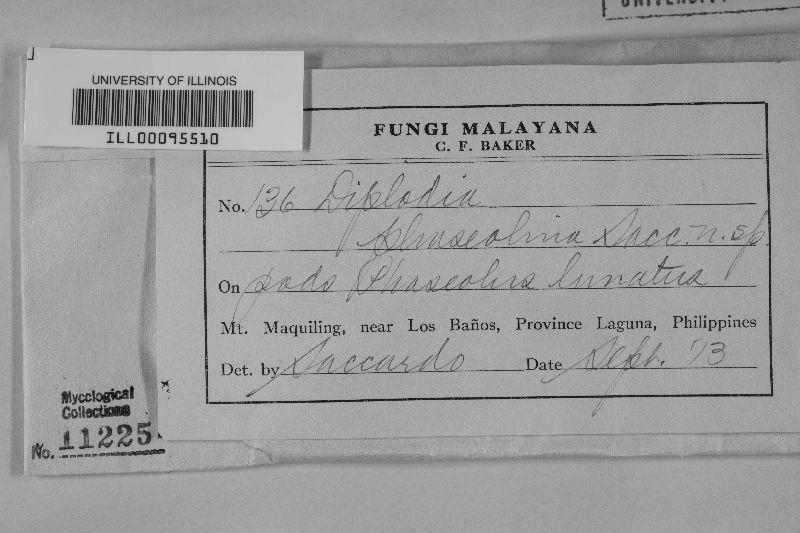 UNIVERSITY
UNIVERSITY OF ILLINOIS
ILL00095510
FUNGI MALAYANA
C. F. BAKER
No. 136 Diplodia
phaseolina Sacc. n. sp.
On pods Phaseolus lunatus
Mt. Maquiling, near Los Baños, Province Laguna, Philippines
Det. by Saccardo Date Sept. '13
Mycological
Collections
No. 11225